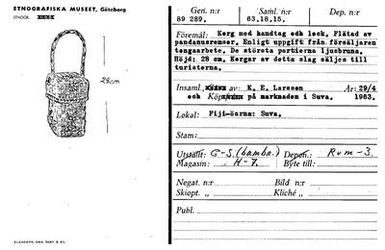 ETNOGRAFISKA MUSEET, Göteborg
28cm
Gen. n:r
89 289.
Saml. n:r
63.18.15.
Dep. n:r
Föremål: Korg med handtag och lock, Flätad av
pandanusremsor. Enligt uppgift från försäljaren
tongaarbete. De större partierna ljusbruna.
Höjd: 28 cm, Korgar av detta slag säljes till
turisterna.
Insaml. av K. E. Larsson År: 29/4
och på marknaden i Suva. 1963.
Lokal: Fiji-öarna: Suva.
Stam:
Utställt: G-S. (bambu.) Depon.: Rum-3.
Magasin: H-7. Byte till:
Negat. n:r Bild n:r
Skiopt. n:r Kliché n:r
Publ.